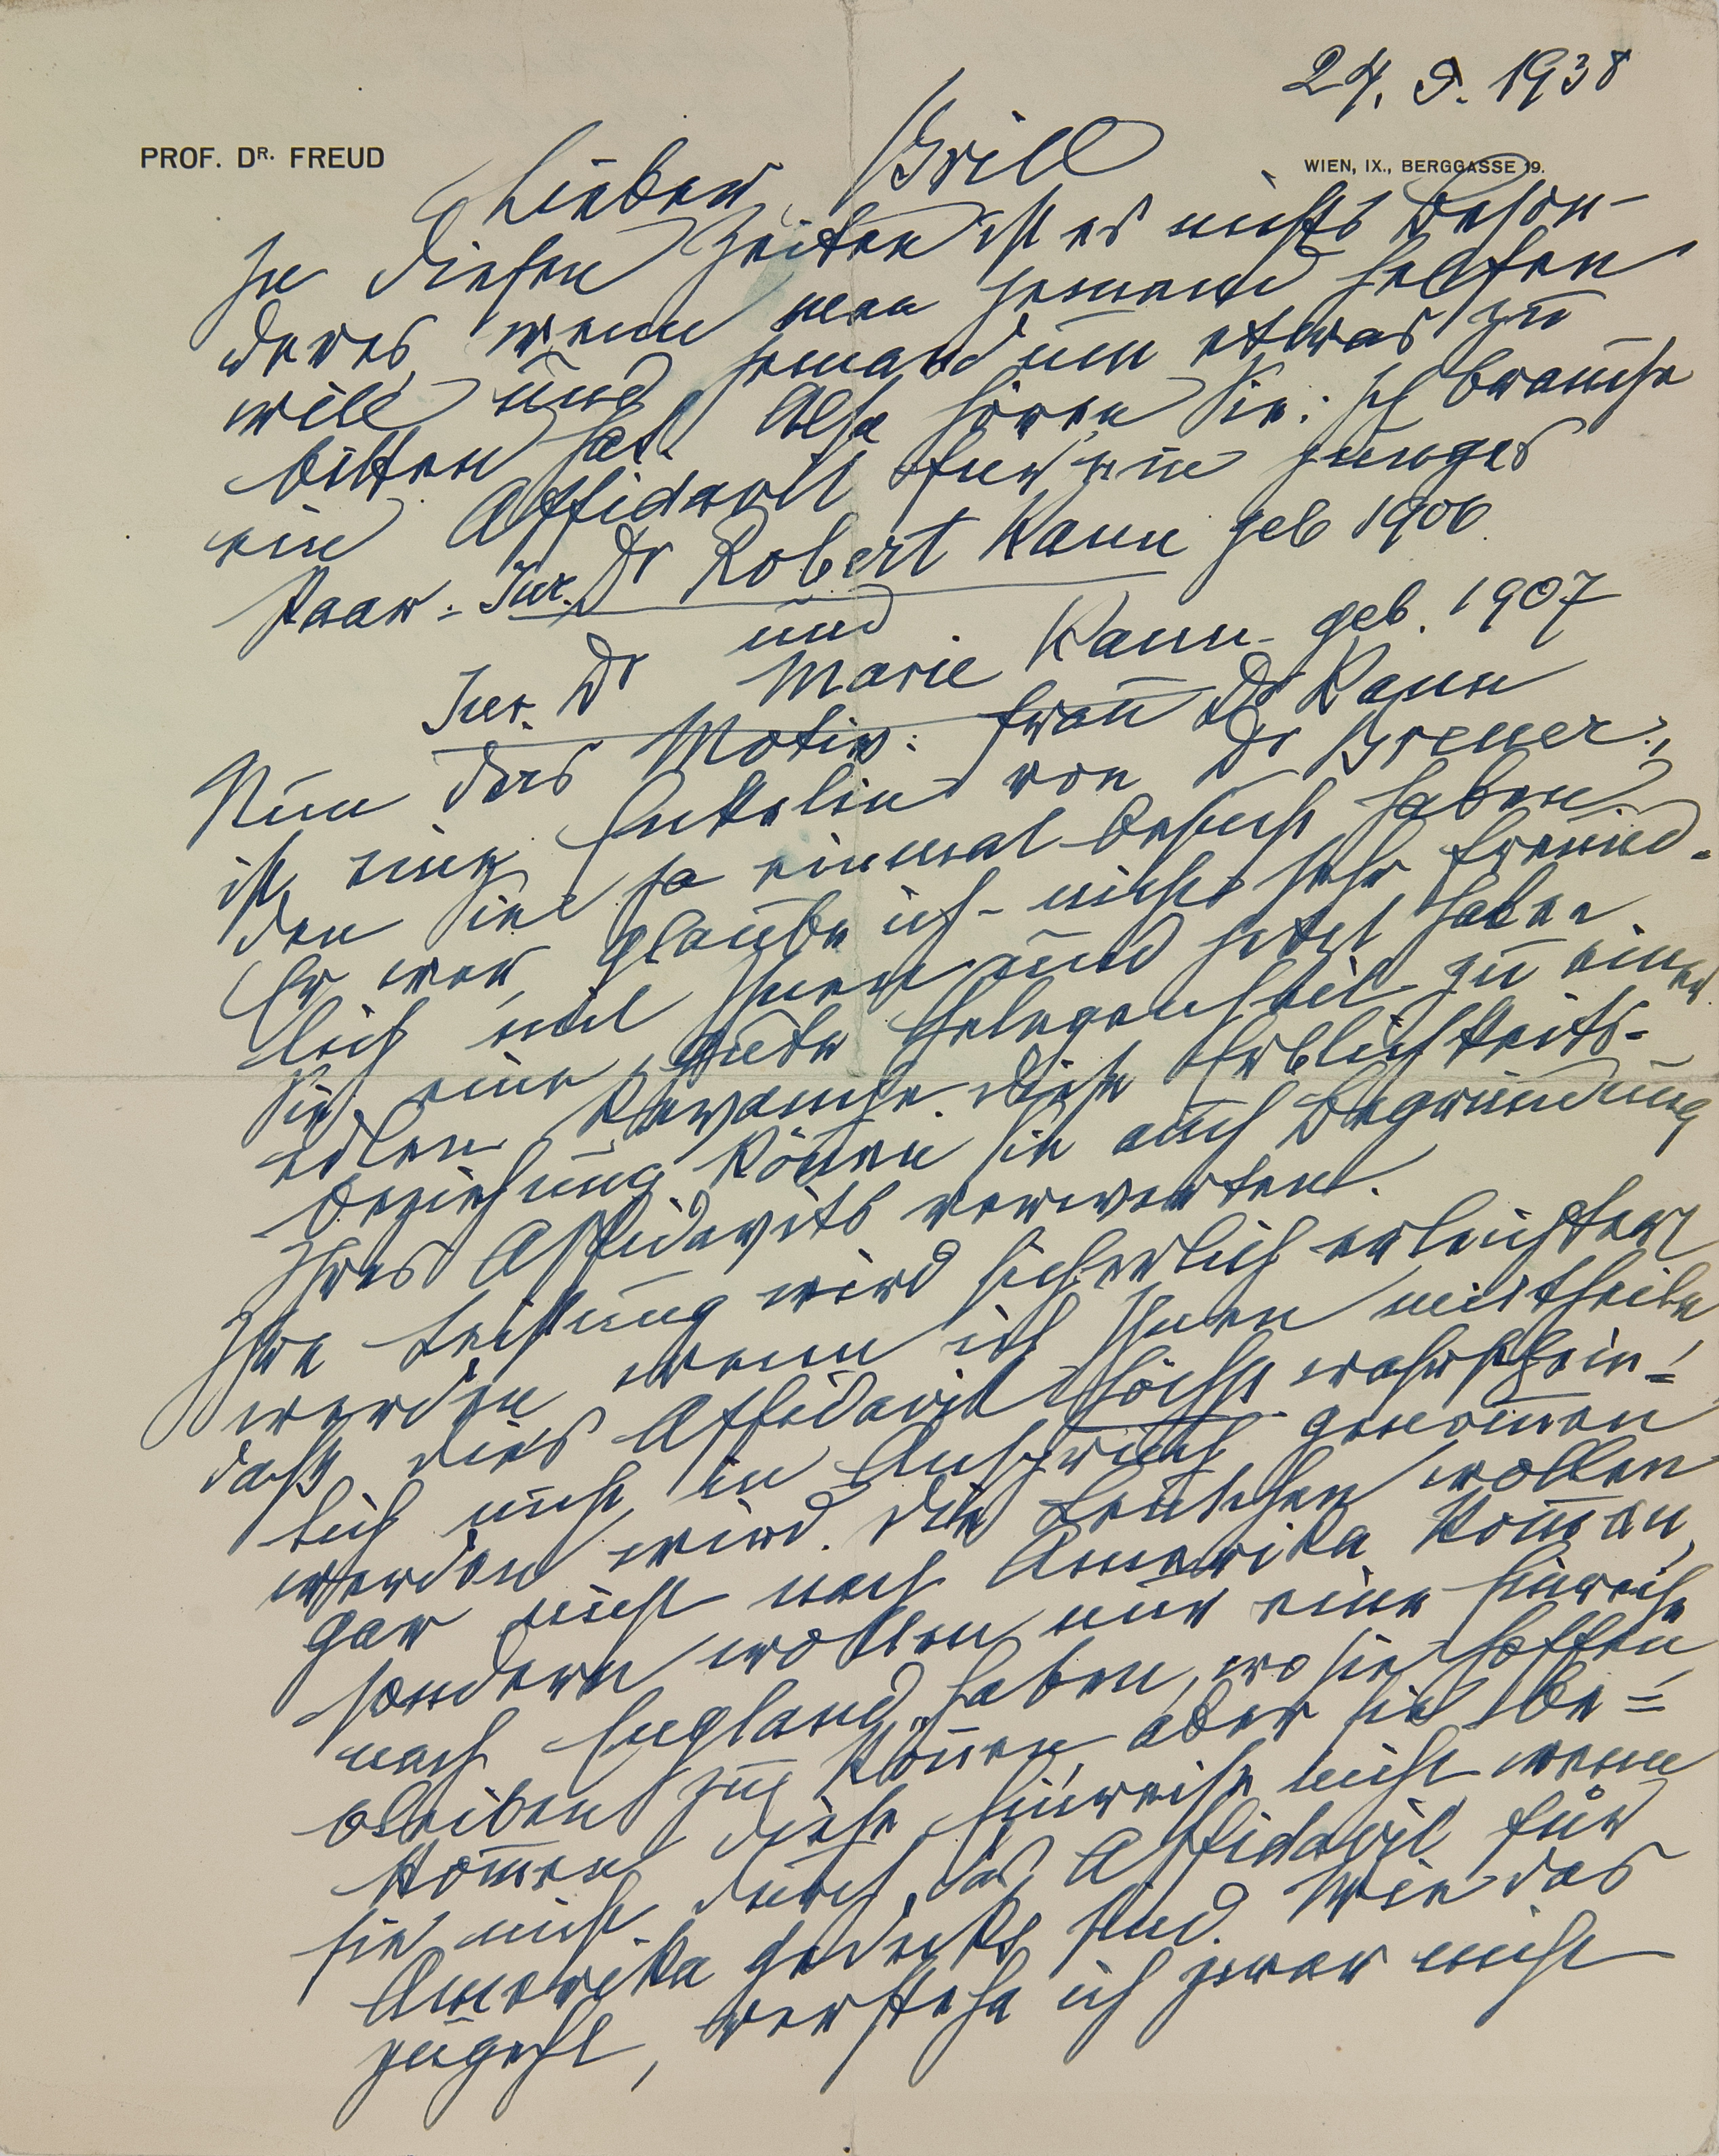 24. 5. 1938
PROF. DR. FREUD
WIEN, IX., BERGGASSE 19.
Lieber Brill
In diesen Zeiten ist es nichts beson-
deres, wenn man jemand helfen
will und jemand um etwas zu
bitten hat. Also hören Sie: Ich brauche
ein Affidavit fuer ein junges
Paar: Jur. Dr Robert Kann geb 1906
und
Jur. Dr Marie Kann geb. 1907
Nun das Motiv: Frau Dr Kann
ist eine Enkelin von Dr Breuer,
den Sie ja einmal besucht haben.
Er war, glaube ich - nicht sehr freund-
lich mit Ihnen und jetzt haben
Sie eine gute Gelegenheit zu einer
edlen Revanche. Diese Erblichkeits-
beziehung können Sie auch Begründung
Ihres Affidavits verwerten.
Ihre Leistung wird sicherlich erleichtert
werden wenn ich Ihnen mittheile
dass dies Affidavit höchst wahrschein-
lich nicht in Anspruch genommen
werden wird. Die Leutchen wollen
gar nicht nach Amerika kommen,
sondern wollen nur eine Einreise
nach England haben, wo sie hoffen
bleiben zu können, aber sie be-
kommen diese Einreise nicht wenn
sie nicht durch das Affidavit für
Amerika gedeckt sind. Wie das
zugeht, verstehe ich zwar nicht